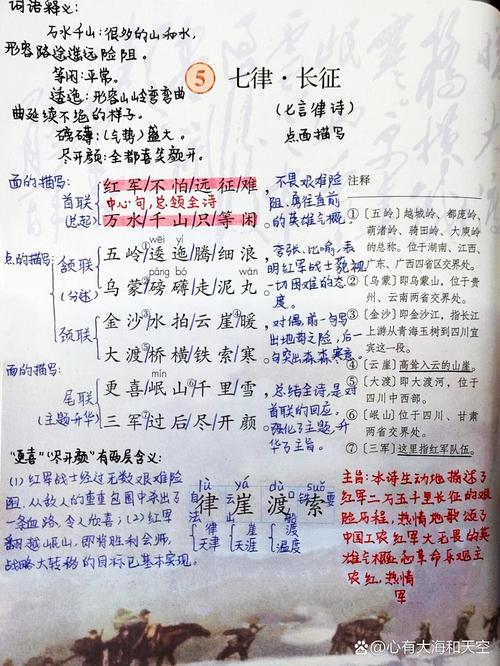 词语释义:
万水千山:很多的山和水,
形容路途遥远险阻。
等闲:平常。
逶迤:形容山岭弯弯曲
曲延续不绝的样子。
磅礴:(气势)盛大。
尽开颜:全都喜笑颜开。
5 七律·长征
(七言律诗)
点面描写
面的描写:
首联
(总起)
红军/不怕/远征/难,
中心句,总领全诗
万水/千山/只/等闲。
不畏艰难险
阻、勇往直前
的英雄气概。
点的描写:
颔联
(分述)
wēi yí
五岭①/逶迤/腾/细浪,
páng bó
乌蒙②/磅礴/走/泥丸。
夸张、比喻,表
明红军战士藐视
一切困难的态
度。
颈联
金沙③/水拍/云崖④/暖,
大渡⑤/桥横/铁索/寒。
对偶,前一句写
出地势之险,后一
句突出森森寒意。
面的描写:
尾联
(主题升华)
mín
更喜/岷山⑥/千里/雪,
三军⑦/过后/尽/开颜。
总结全诗,是对
首联的回应。
强化了主题,升
华了主旨。
注释
①〔五岭〕越城岭、都庞岭、
萌渚岭、骑田岭、大庾岭
的总称。位于湖南、江西、
广东、广西四省区交界处。
②〔乌蒙〕即乌蒙山,位于贵
州、云南两省交界处。
③〔金沙〕即金沙江,指长江
上游从青海玉树到四川宜
宾这一段。
④〔云崖〕高耸入云的山崖。
⑤〔大渡〕即大渡河,位于
四川中西部。
⑥〔岷山〕位于四川、甘肃
两省交界处。
⑦〔三军〕这里指红军队伍。
“更喜”“尽开颜”有两层含义:
(1)红军战士经过无数艰难险
阻,从敌人的重重包围中杀出了
一条血路,令人欣喜;(2)红军
翻越岷山,即将胜利会师,
战略大转移的目标已基本实现。
lǜ yá dù suǒ
律 崖 渡 索
自 云 船
法 山
律 崖 渡
津 涯 度
天津 天涯 温度
主旨:本诗生动地描述了
红军二万五千里长征的艰
险历程,热情地歌颂了
中国工农红军大无畏的英
雄气概和革命乐观主
农红,热情
军
心有大海和天空